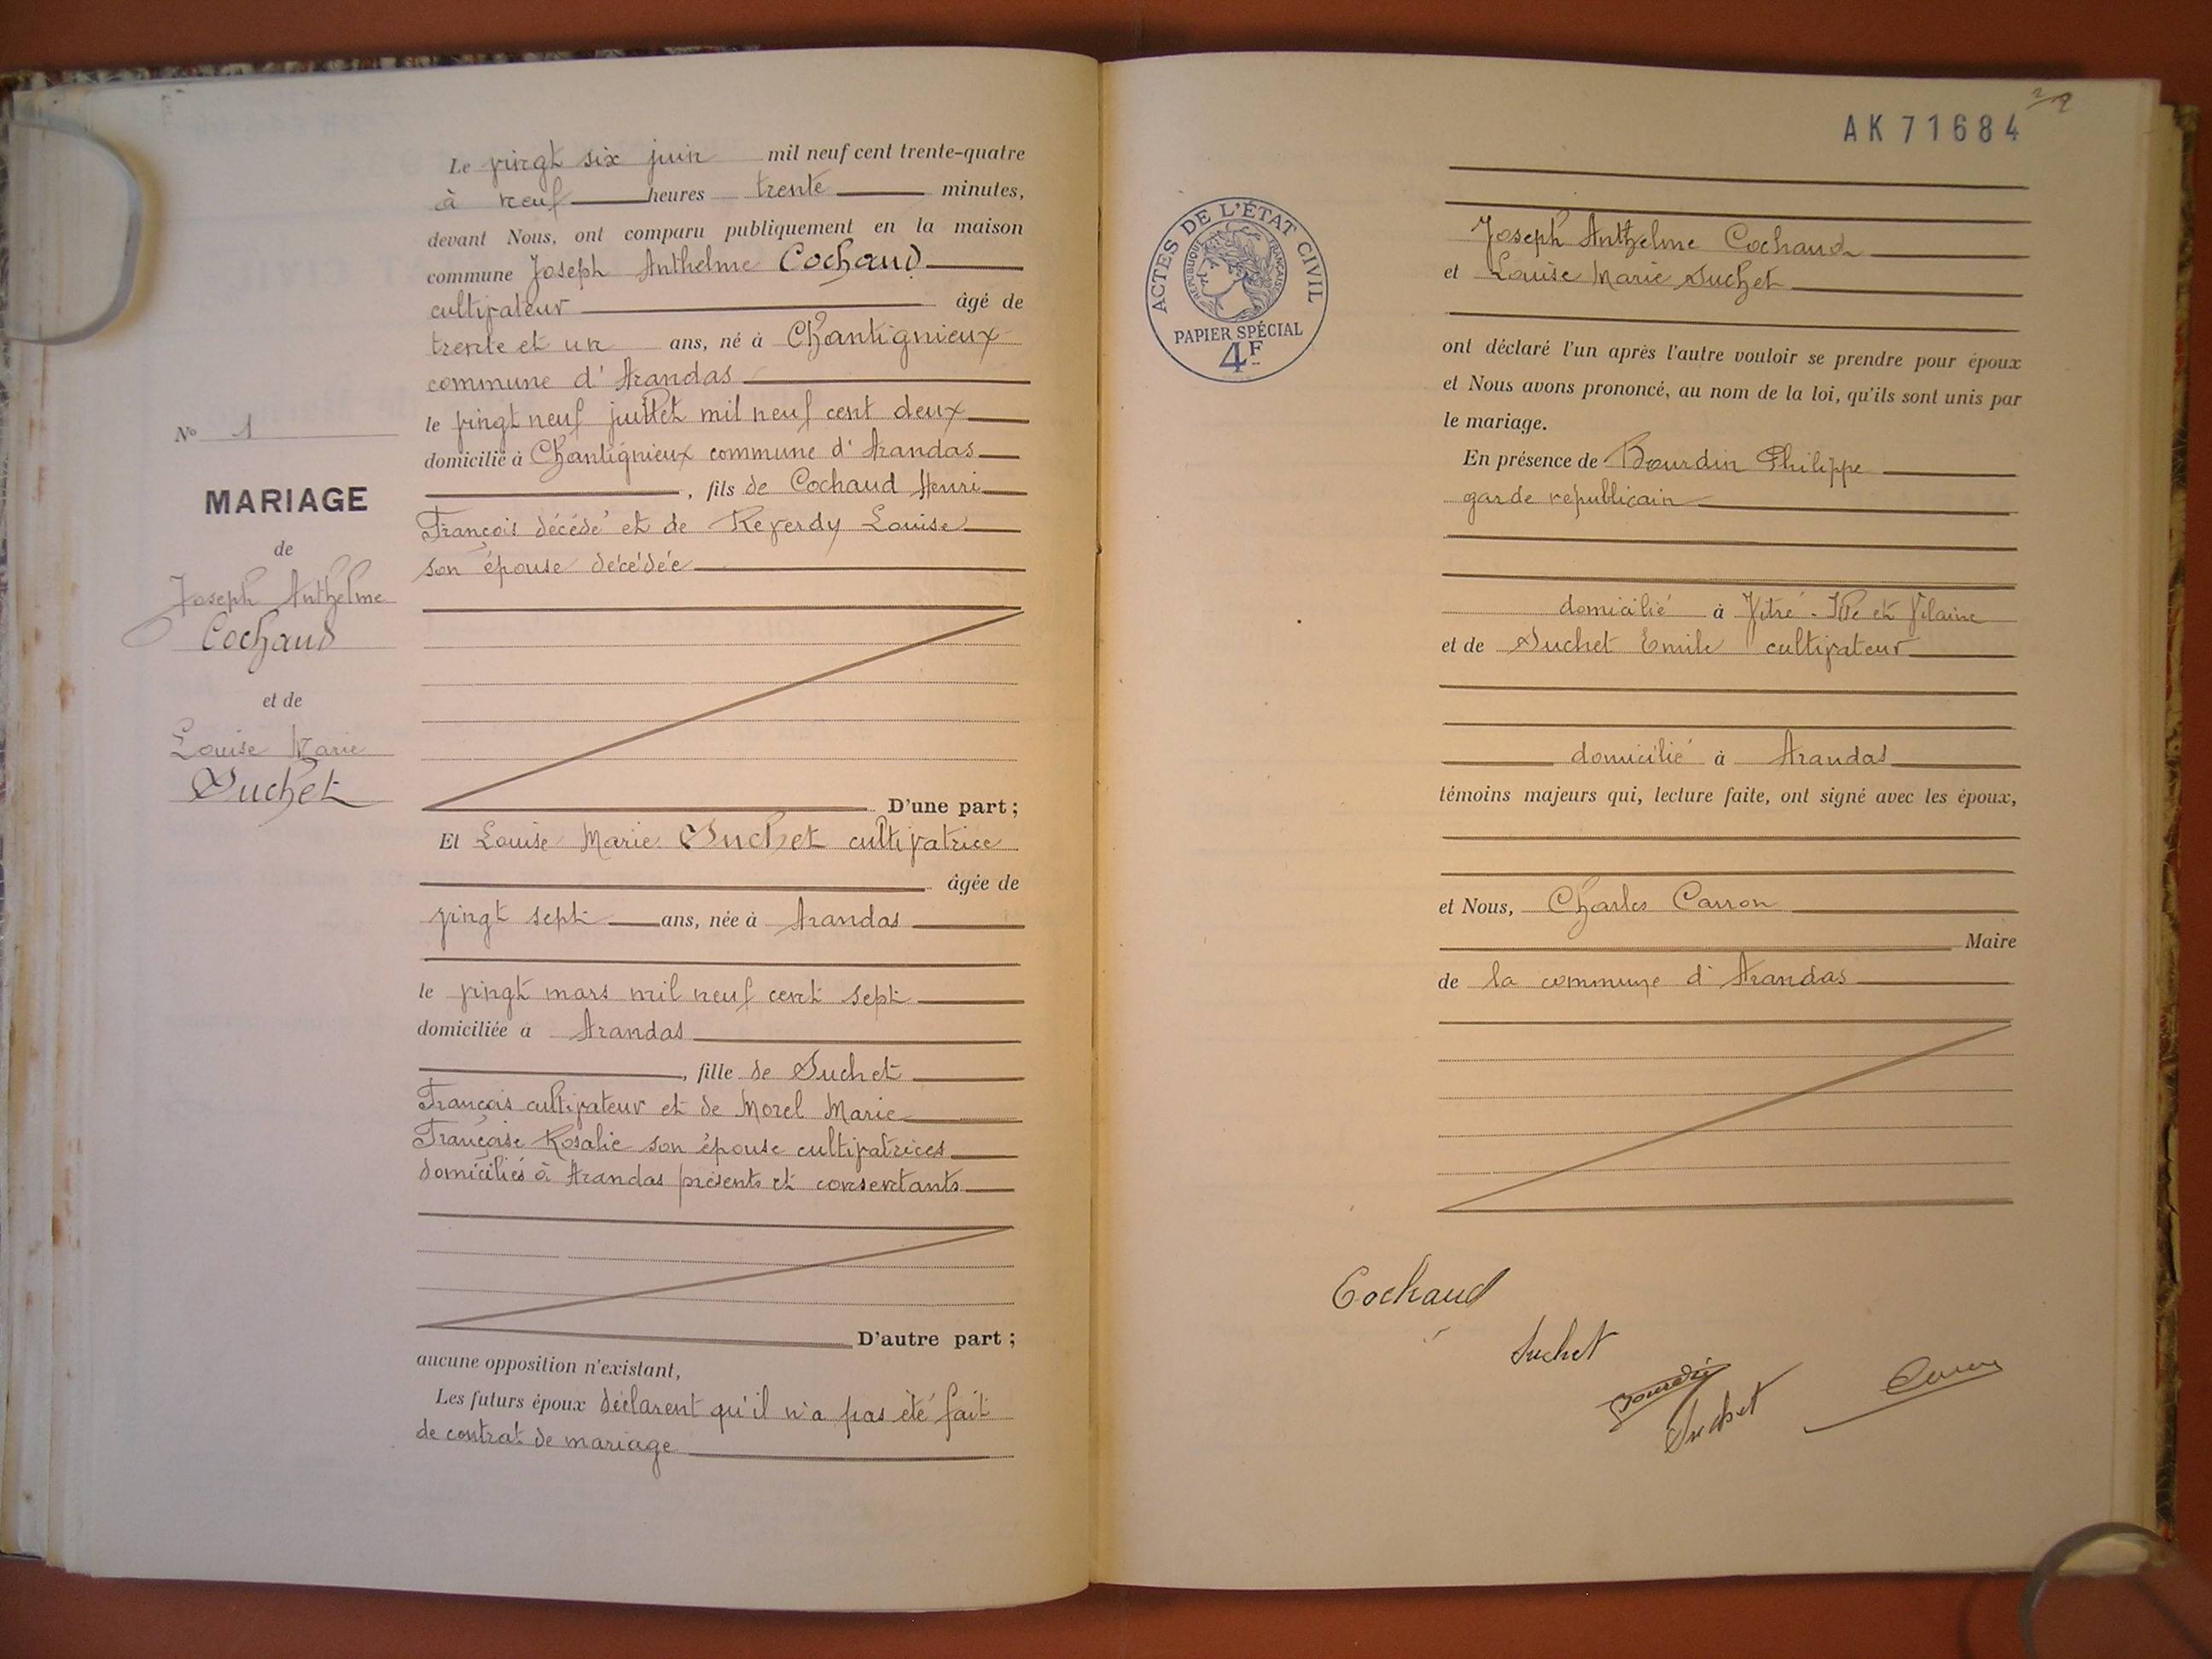 Le vingt six juin mil neuf cent trente-quatre
à neuf heures trente minutes,
devant Nous, ont comparu publiquement en la maison
commune Joseph Anthelme Cochaud
cultivateur âgé de
trente et un ans, né à Chantignieux
commune d'Arandas
le vingt neuf juillet mil neuf cent deux
domicilié à Chantignieux commune d'Arandas
, fils de Cochaud Henri
François décédé et de Reverdy Louise
son épouse décédée
D'une part ;
Et Louise Marie Suchet cultivatrice
âgée de
vingt sept ans, née à Arandas
le vingt mars mil neuf cent sept
domiciliée à Arandas
, fille de Suchet
François cultivateur et de Morel Marie
Françoise Rosalie son épouse cultivatrices
domiciliés à Arandas présents et consentants
D'autre part ;
aucune opposition n'existant,
Les futurs époux déclarent qu'il n'a pas été fait
de contrat de mariage
N° 1
MARIAGE
de
Joseph Anthelme
Cochaud
et de
Louise Marie
Suchet
AK 71684
2
ACTES DE L'ÉTAT CIVIL
RÉPUBLIQUE FRANÇAISE
PAPIER SPÉCIAL
4F
Joseph Anthelme Cochaud
et Louise Marie Suchet
ont déclaré l'un après l'autre vouloir se prendre pour époux
et Nous avons prononcé, au nom de la loi, qu'ils sont unis par
le mariage.
En présence de Bourdin Philippe
garde republicain
domicilié à Vitré - Ille et Vilaine
et de Suchet Emile cultivateur
domicilié à Arandas
témoins majeurs qui, lecture faite, ont signé avec les époux,
et Nous, Charles Carron
Maire
de la commune d'Arandas
Cochaud
Suchet
Bourdin
Suchet